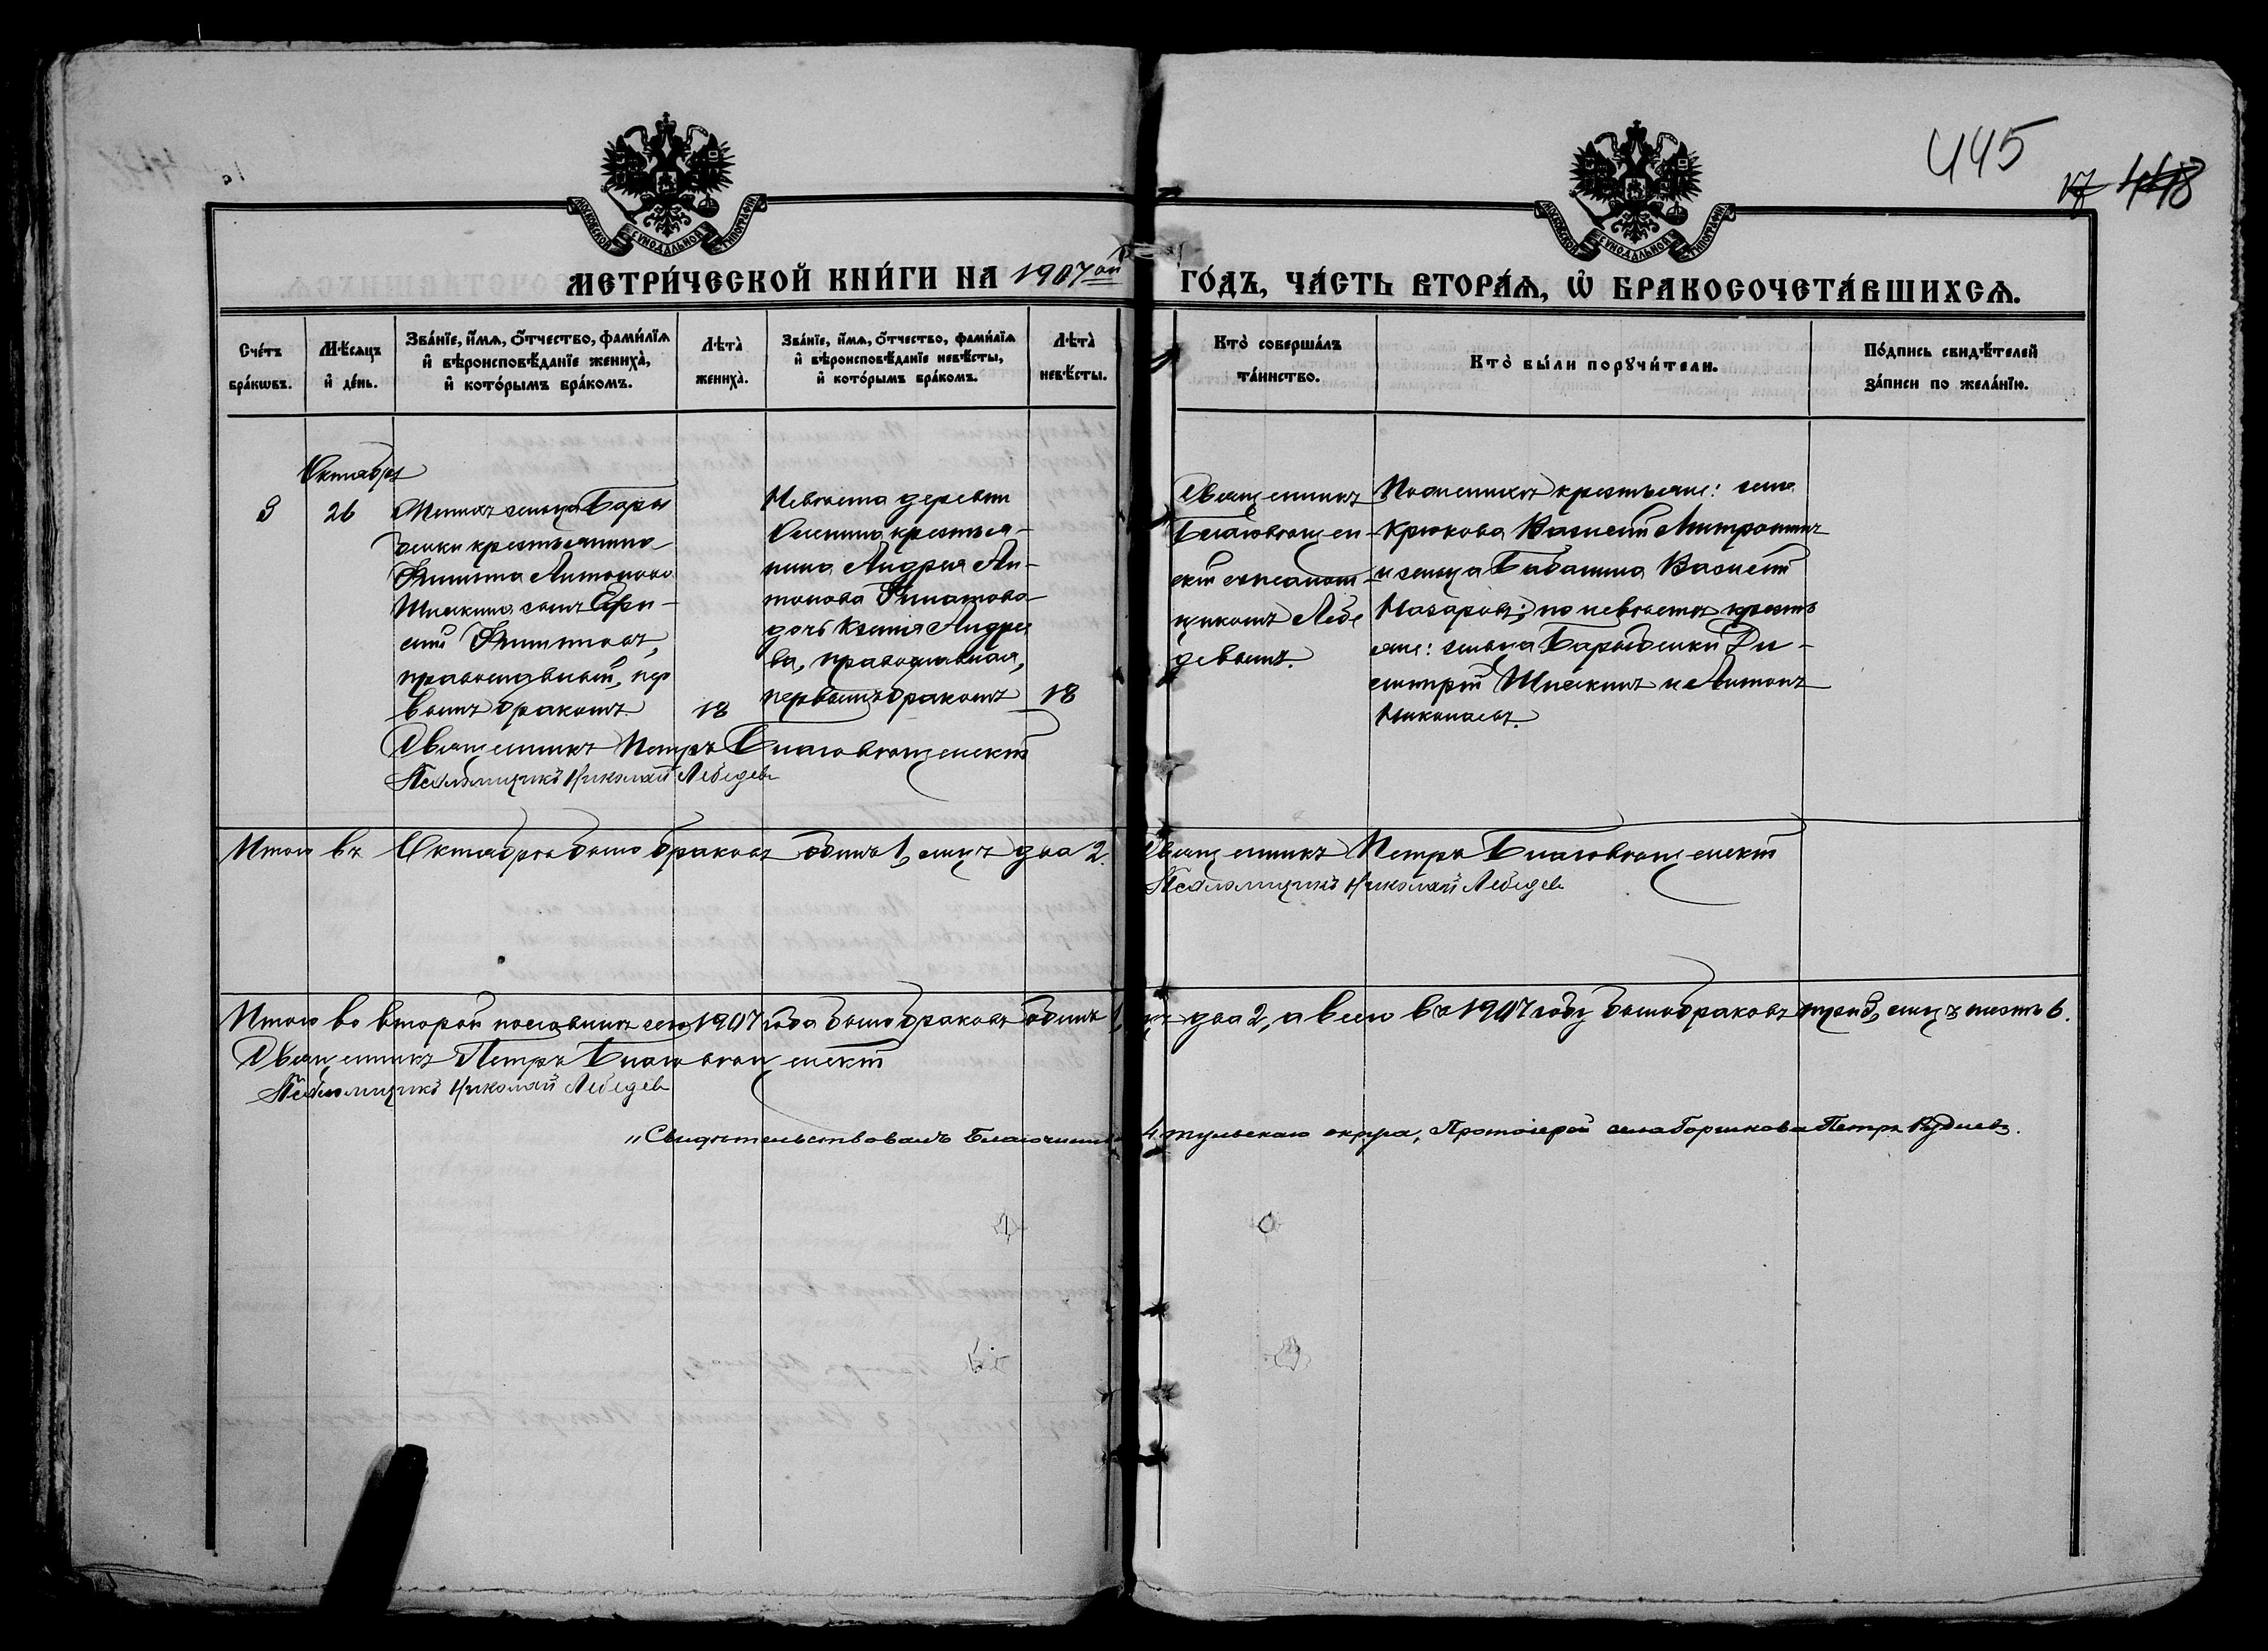 445
17 448
МОСКОВСКОЙ СУНОДАЛЬНОЙ ТИПОГРАФІИ
МОСКОВСКОЙ СУНОДАЛЬНОЙ ТИПОГРАФІИ
МЕТРИ́ЧЕСКОЙ КНИ́ГИ НА 1907ой ГО́ДЪ, ЧА́СТЬ ВТОРА́Ѧ, Ѽ БРАКОСОЧЕТА́ВШИХСѦ.
Сче́тъ
бра́кѡвъ.
Мѣ́сяцъ
и҆ де́нь.
Зва́нїе, и҆́мѧ, ѻ҆́тчество, фами́лїѧ
и҆ вѣроисповѣ́данїе жениха̀,
и҆ кото́рымъ бра́комъ.
Лѣта̀
жениха̀.
Зва́нїе, и҆́мѧ, ѻ҆́тчество, фами́лїѧ
и҆ вѣроисповѣ́данїе невѣ́сты,
и҆ кото́рымъ бра́комъ.
Лѣта̀
невѣ́сты.
Кто̀ соверша́лъ
та́инство.
Кто̀ бы́ли порꙋчи́тели.
По́дпись свидѣ́телей
за́писи по жела́нїю.
Октябрь
3
26
Женихъ сельца Бары
бенки крестьянина
Филиппа Антонова
Шишкина сынъ
Филипповъ,
православный, пер
вымъ бракомъ.
18
Невѣста деревни
крестья-
нина Андрея Ан-
тонова Филатова
дочь Ксенія Андрее
ва, православная,
первымъ бракомъ
18
Священникъ
Благовѣщен-
скій съ псалом-
щикомъ Лебе
девымъ.
По женихѣ крестьяне: села
Крюкова Василій Митрофановъ
и сельца Бабанина Василій
Назаровъ; по невѣстѣ кресть
яне: сельца Барыбенки Ди-
митрій Шишкинъ и Антонъ
Николаевъ.
Священникъ Петръ Благовѣщенскій
Псаломщикъ Николай Лебедевъ
Итого въ Октябрѣ было браковъ одинъ 1, лицъ два 2. Священникъ Петръ Благовѣщенскій
Псаломщикъ Николай Лебедевъ
Итого во второй половинѣ сего 1907 года было браковъ одинъ 1, лицъ два 2, а всего въ 1907 году было браковъ три 3, лицъ шесть 6.
Священникъ Петръ Благовѣщенскій
Псаломщикъ Николай Лебедевъ
„Свидѣтельствовалъ Благочинный 4 тульскаго округа, Протоіерей села Боршкова Петръ Рудневъ.